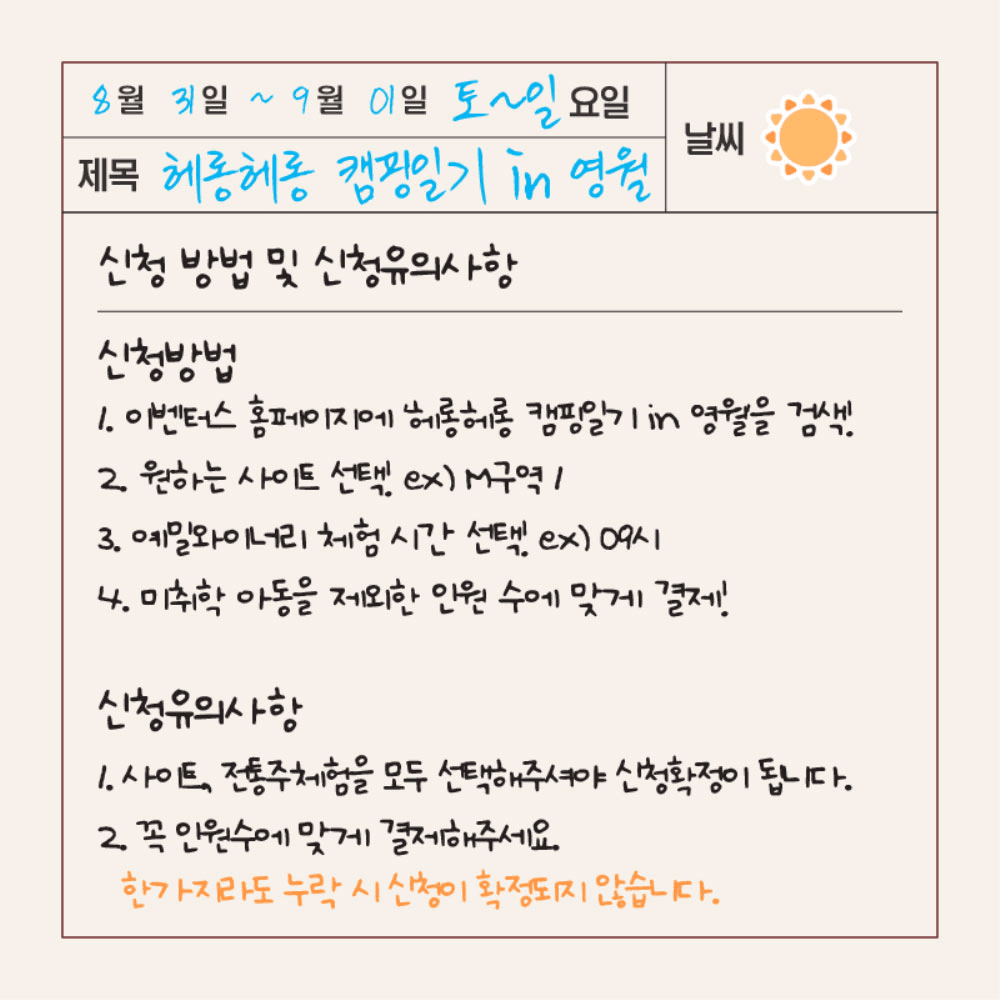 8월 31일 ~ 9월 01일 토~일요일
날씨
제목 헤롱헤롱 캠핑일기 in 영월
신청 방법 및 신청유의사항
신청방법
1. 이벤터스 홈페이지에 헤롱헤롱 캠핑일기 in 영월을 검색!
2. 원하는 사이트 선택! ex) M구역 1
3. 예밀와이너리 체험 시간 선택! ex) 09시
4. 미취학 아동을 제외한 인원 수에 맞게 결제!
신청유의사항
1. 사이트, 전통주체험을 모두 선택해주셔야 신청확정이 됩니다.
2. 꼭 인원수에 맞게 결제해주세요.
한가지라도 누락 시 신청이 확정되지 않습니다.